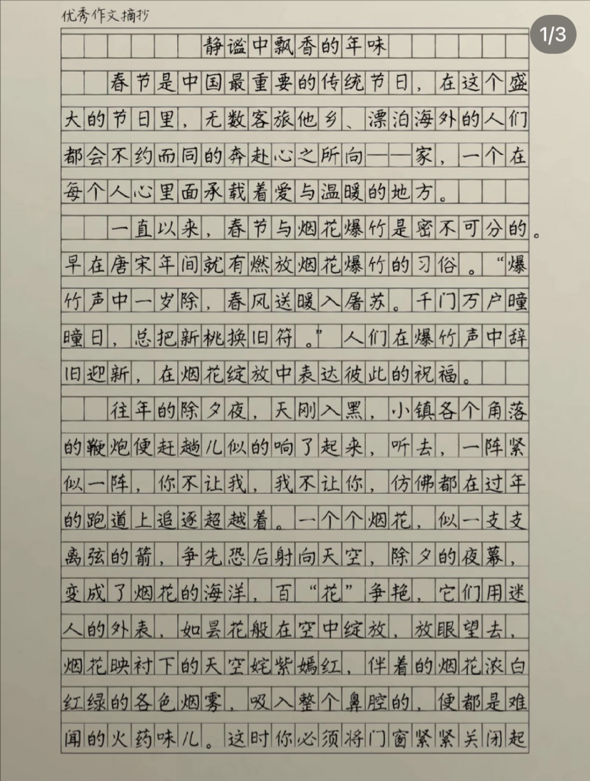 优秀作文摘抄
1/3
静谧中飘香的年味
春节是中国最重要的传统节日，在这个盛
大的节日里，无数客旅他乡、漂泊海外的人们
都会不约而同的奔赴心之所向——家，一个在
每个人心里面承载着爱与温暖的地方。
一直以来，春节与烟花爆竹是密不可分的。
早在唐宋年间就有燃放烟花爆竹的习俗。“爆
竹声中一岁除，春风送暖入屠苏。千门万户曈
曈日，总把新桃换旧符。”人们在爆竹声中辞
旧迎新，在烟花绽放中表达彼此的祝福。
往年的除夕夜，天刚入黑，小镇各个角落
的鞭炮便赶趟儿似的响了起来，听去，一阵紧
似一阵，你不让我，我不让你，仿佛都在过年
的跑道上追逐超越着。一个个烟花，似一支支
离弦的箭，争先恐后射向天空，除夕的夜幕，
变成了烟花的海洋，百“花”争艳，它们用迷
人的外表，如昙花般在空中绽放，放眼望去，
烟花映衬下的天空姹紫嫣红，伴着的烟花浓白
红绿的各色烟雾，吸入整个鼻腔的，便都是难
闻的火药味儿。这时你必须将门窗紧紧关闭起